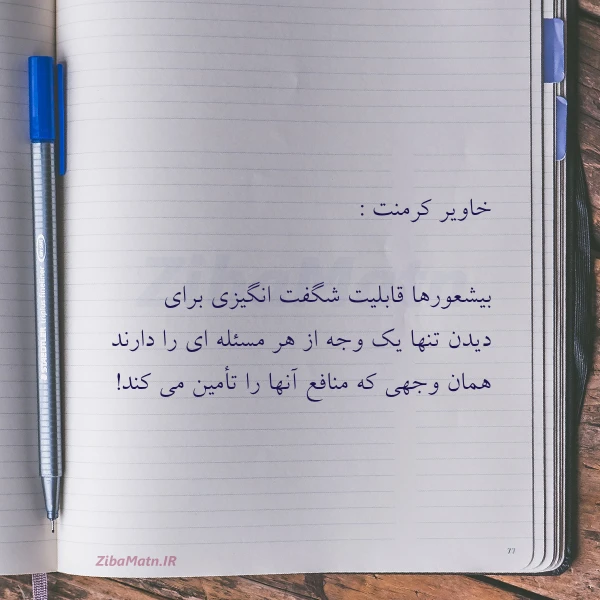 خاویر کرمنت :
بیشعورها قابلیت شگفت انگیزی برای
دیدن تنها یک وجه از هر مسئله ای را دارند
همان وجهی که منافع آنها را تأمین می کند!
ZibaMatn.IR